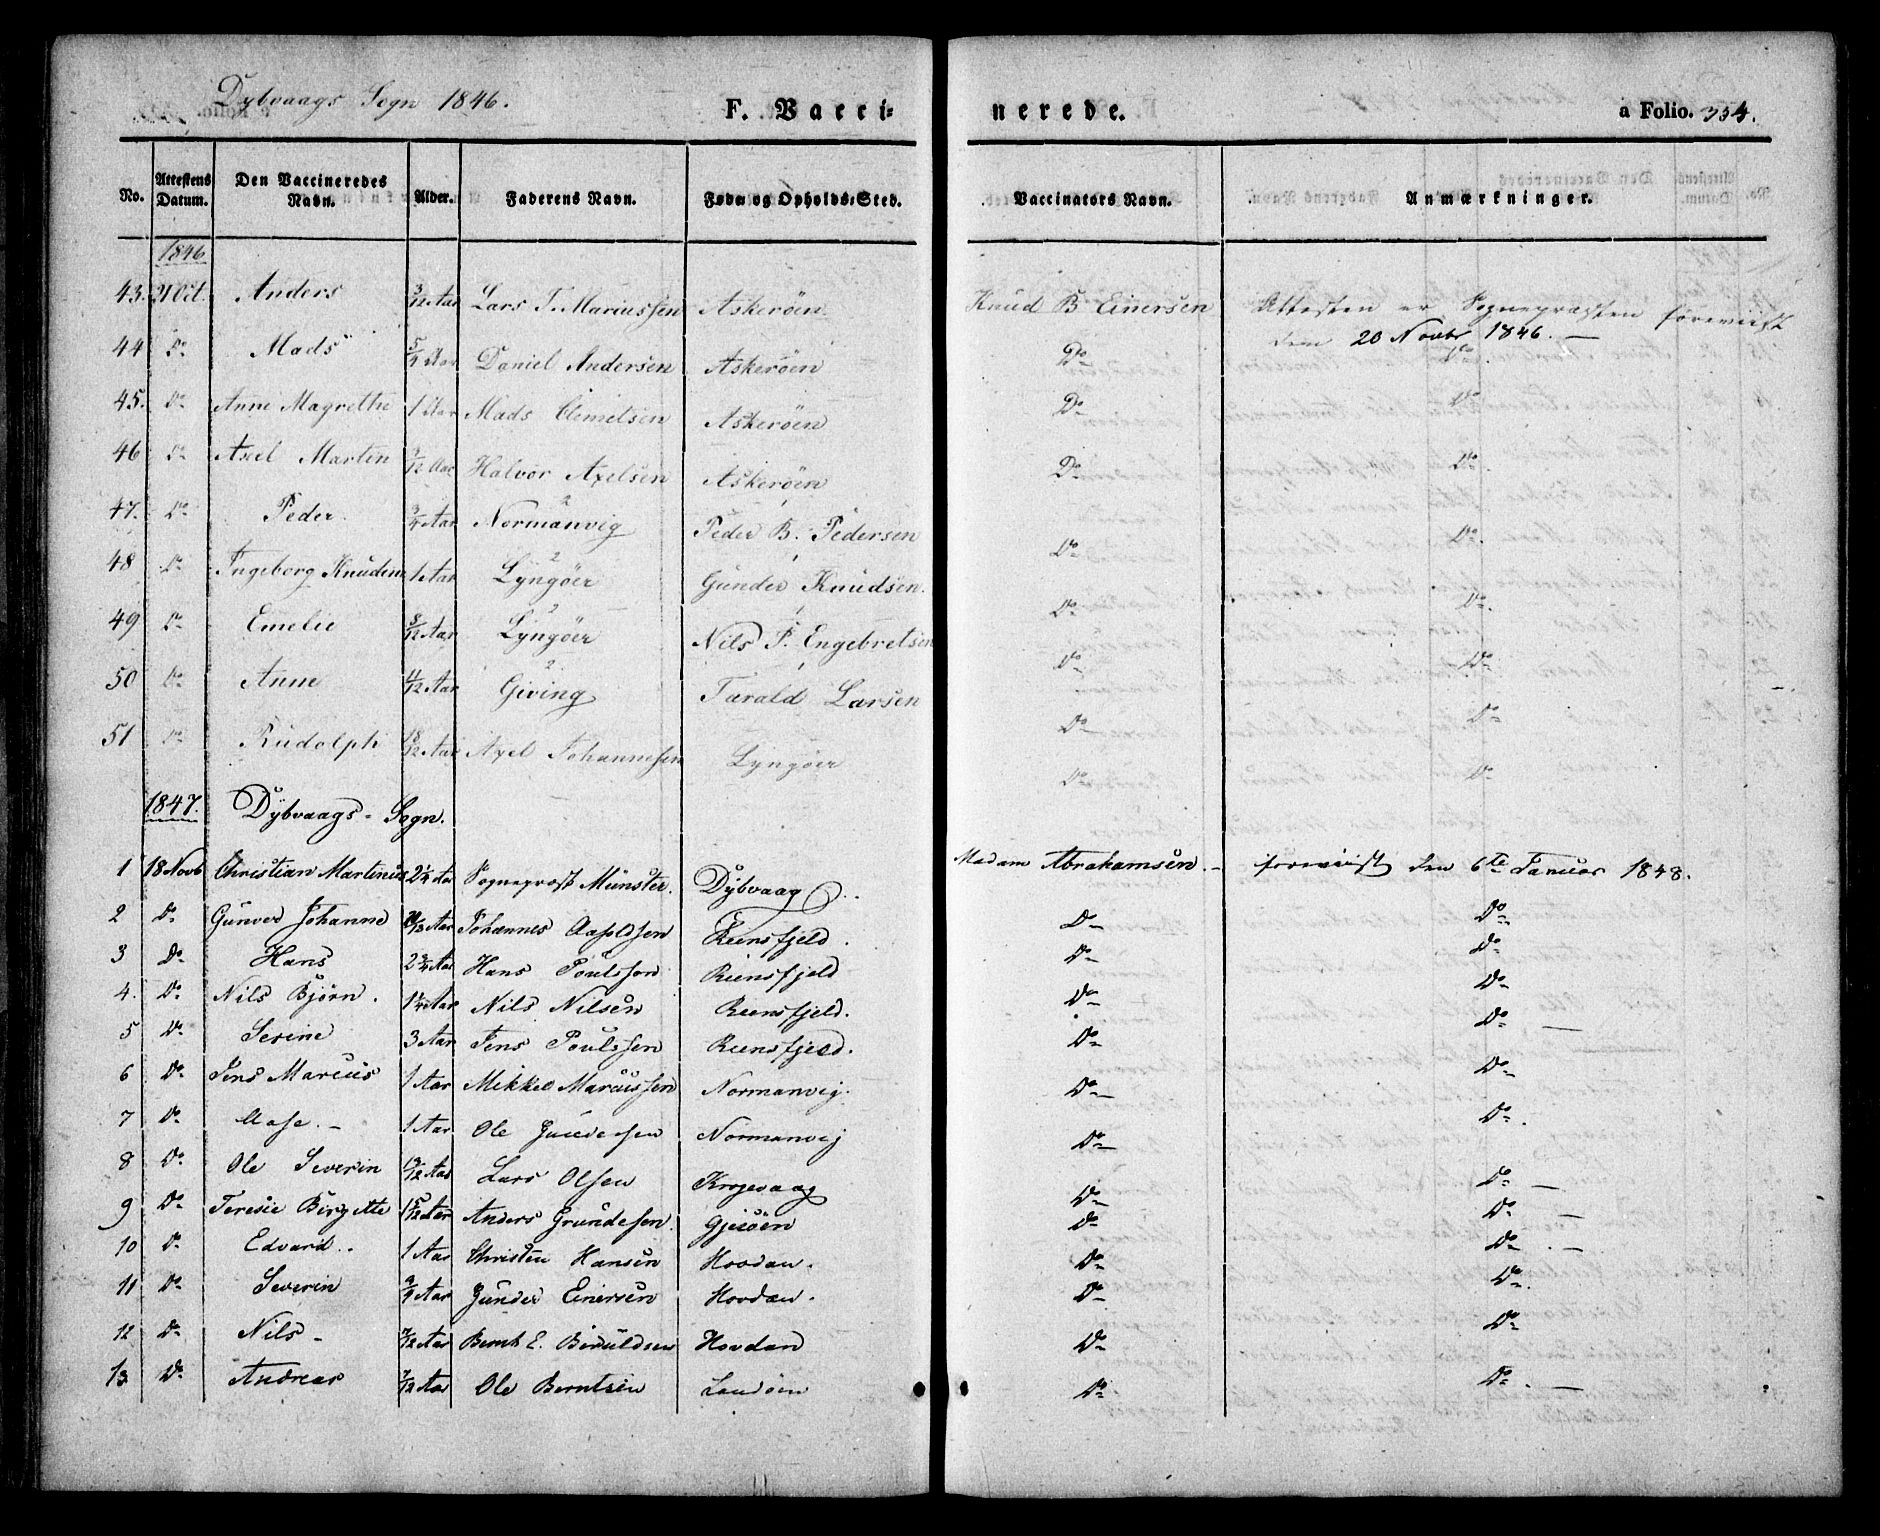 Dybvaags Sogn 1846.
F. Vaccinerede. a Folio. 354.
No. | Attestens Datum. | Den Vaccineredes Navn. | Alder. | Faderens Navn. | Føde- og Opholds-Sted. | Vaccinators Navn. | Anmærkninger.
1846
43. 21 Oct. Anders 3/12 Aar Lars T. Mariussen Askerøen Knud B Einersen Attesten er Sognepræsten foreviist
dem 20 Novbr 1846. —
44 Do Mads 5/4 Aar Daniel Andersen Askerøen Do Do
45. Do Anne Magrethe 1 Aar Mads Clemetsen Askerøen Do Do
46 Do Axel Martin 3/12 Aar Halvor Axelsen Askerøen Do Do
47. Do Peder 3/4 Aar Normanvig 2 Peder B. Pedersen 1 Do Do
48 Do Ingeborg Knudine 1 Aar Lyngøer 2 Gunder Knudsen. 1 Do Do
49 Do Emelie 8/12 Aar Lyngøer 2 Nils P. Engebretsen 1 Do Do
50 Do Anne 4/12 Aar Giving 2 Tarald Larsen 1 Do Do
51 Do Rudolph 18/12 Aar Axel Johannesen Lyngøer Do Do
1847. Dybvaags-Sogn.
1 18 Novb Christian Martinius 2 1/4 Aar Sognepræst Münster. Dybvaag Madam Abrahamsen — foreviist den 6te Januar 1848.
2 Do Gunver Johanne Aar Johannes Reensfjeld. Do Do
3 Do Hans 2 3/4 Aar Hans Poulsson Reensfjeld Do Do
4. Do Nils Bjørn. 1 1/4 Aar Nils Nilsen Reensfjeld. Do Do
5 Do Serine 3 Aar Jens Poulssen Reensfjeld. Do Do —
6 Do Jens Marcus 1 Aar Mikkel Marcussen Normanvig. Do Do
7 Do Aase. — 1 Aar Ole Gundersen Normanvig Do Do.
8 Do Ole Severin 9/12 Aar Lars Olsen Krogevaag Do Do —
9 Do Teresie Birgette 15/12 Aar Anders Grundesen. Gjesøen Do Do —
10 Do Edvard. 1 Aar Christen Hansen Hovdan. Do Do. —
11 Do Severin 3/4 Aar Gunder Einersen Hovdan. Do Do.
12 Do Nils — 7/12 Aar Bernh E. Hovdan Do Do
13 Do Andreas 7/12 Aar Ole Berntsen Sandøen Do Do. —